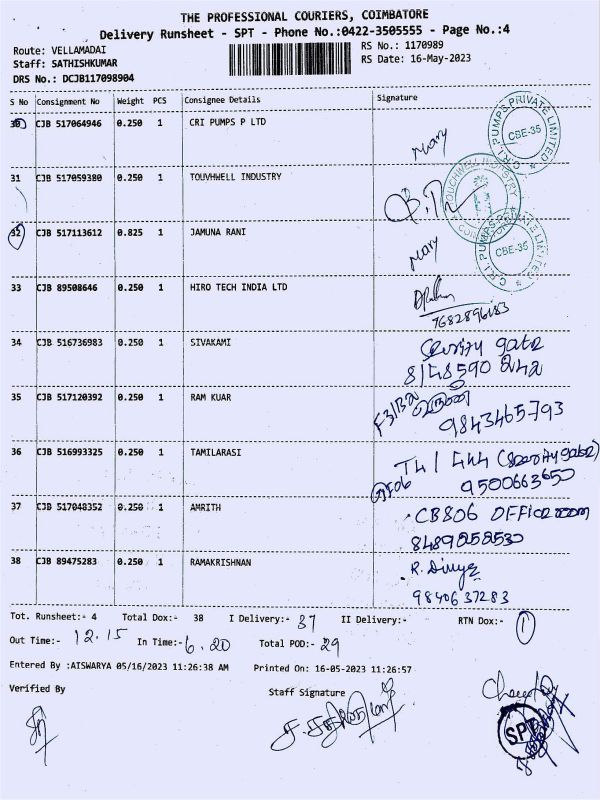 THE PROFESSIONAL COURIERS, COIMBATORE
Delivery Runsheet - SPT - Phone No.:0422-3505555 - Page No.:4
Route: VELLAMADAI
RS No.: 1170989
Staff: SATHISHKUMAR
RS Date: 16-May-2023
DRS No.: DCJB117098904
S No Consignment No Weight PCS Consignee Details Signature
30 CJB 517064946 0.250 1 CRI PUMPS P LTD Mary
C.R.I. PUMPS PRIVATE LIMITED CBE-35
31 CJB 517059380 0.250 1 TOUVHWELL INDUSTRY
TOUCHWELL INDUSTRY
32 CJB 517113612 0.825 1 JAMUNA RANI Mary
C.R.I. PUMPS PRIVATE LIMITED CBE-35
33 CJB 89508646 0.250 1 HIRO TECH INDIA LTD
7682896183
34 CJB 516736983 0.250 1 SIVAKAMI
8148590242
35 CJB 517120392 0.250 1 RAM KUAR
9843465793
36 CJB 516993325 0.250 1 TAMILARASI
9500663650
37 CJB 517048352 0.250 1 AMRITH CB806 OFFICE room
8489858530
38 CJB 89475283 0.250 1 RAMAKRISHNAN R. Divya
9840637283
Tot. Runsheet:- 4 Total Dox:- 38 I Delivery:- 37 II Delivery:- RTN Dox:- 1
Out Time:- 12.15 In Time:- 6.20 Total POD:- 29
Entered By :AISWARYA 05/16/2023 11:26:38 AM Printed On: 16-05-2023 11:26:57
Verified By Staff Signature
SPT